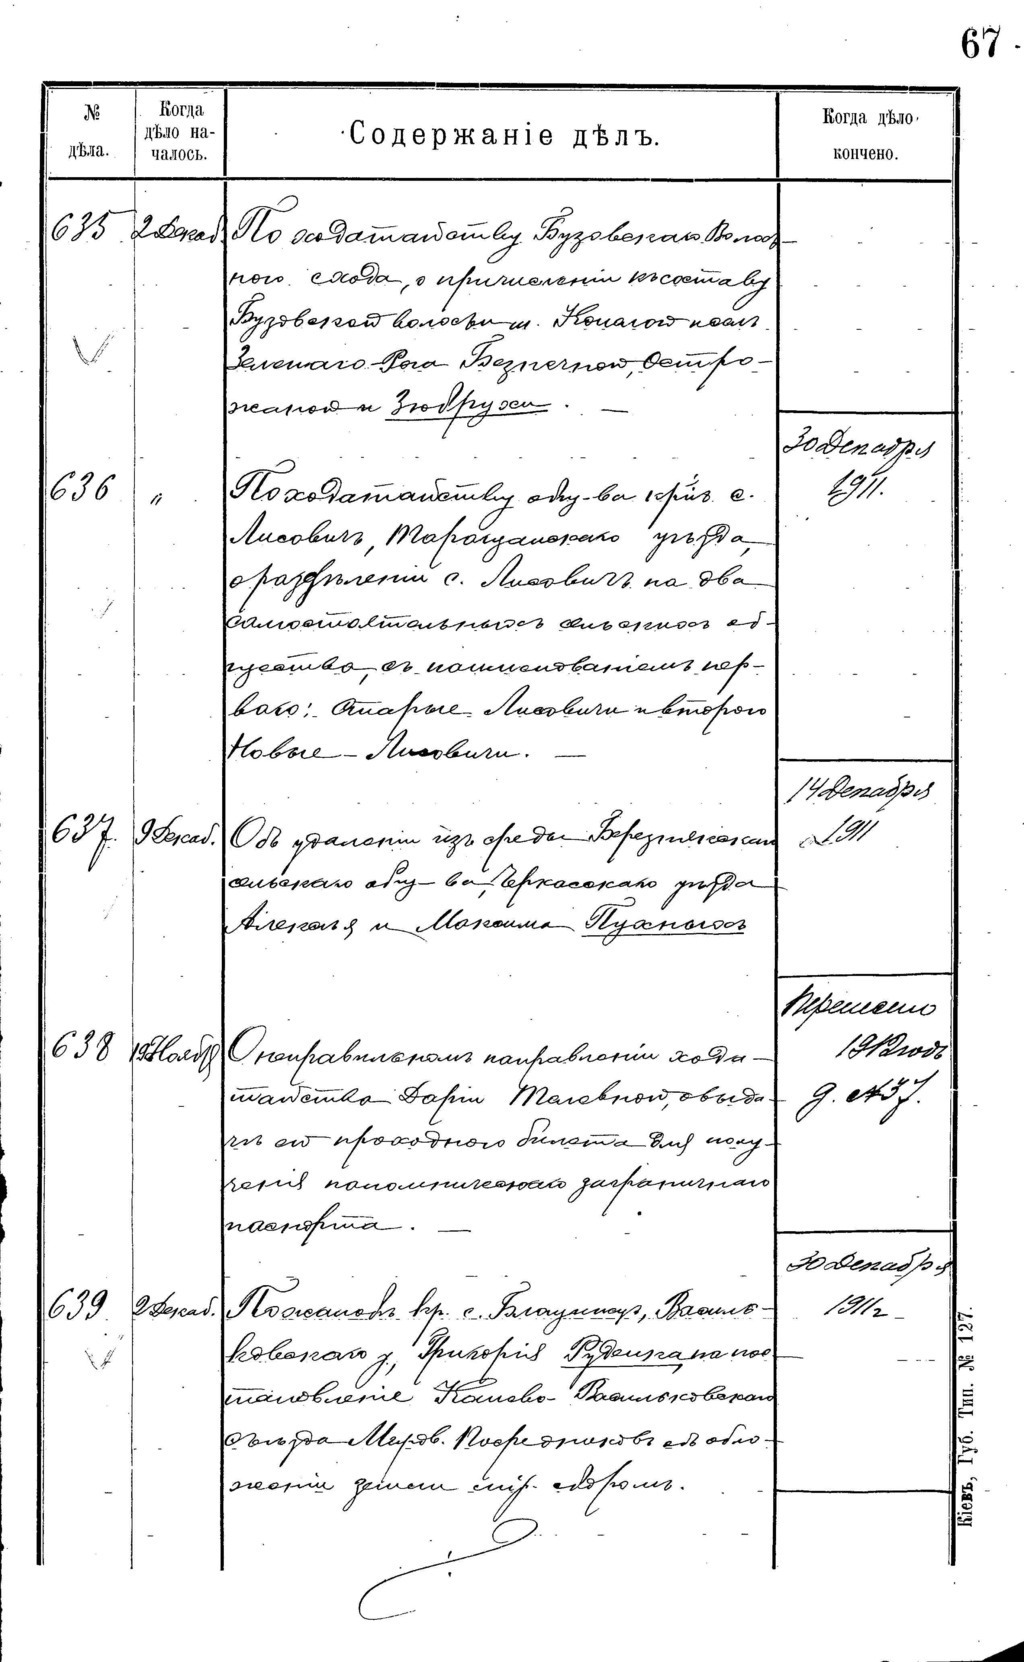 67
№ дѣла.
Когда дѣло началось.
Содержаніе дѣлъ.
Когда дѣло кончено.
635 2 Декаб. По ходатайству Бузовскаго Волост-
ного схода, о причисленіи къ составу
Бузовской волости м. Конатой и сел.
Зеленаго-Рога Безпечной, Остро-
жаной и Зюбрухи. —
30 Декабря
636 " По ходатайству общ-ва крѣп. с. 1911.
Лисовичъ, Таращанскаго уѣзда,
о раздѣленіи с. Лисовичъ на два
самостоятельныхъ сельскихъ об-
щества, съ наименованіемъ пер-
ваго: Старые Лисовичи и второго
Новые-Лисовичи. —
14 Декабря
637. 9 Декаб. Объ удаленіи изъ среды Березнякскаго 1911
сельскаго общ-ва, Черкасскаго уѣзда
Алексѣя и Максима Пухныхъ
Перенесено
638 19 Ноябр О неправильномъ направленіи хода- 1912 годъ
тайства Даріи Магевной, о выда- д. №37.
чѣ ей проходного билета для полу-
ченія паломническаго заграничнаго
паспорта. —
30 Декабря
639 2 Декаб. По жалобѣ кр. с. Василь- 1911г
ковскаго у., Григорія Руденка, на пос-
тановленіе Каневo-Васильковскаго
съѣзда Миров. Посредниковъ объ обло-
женіи земли мір. сборомъ.
Кіевъ, Губ. Тип. № 127.